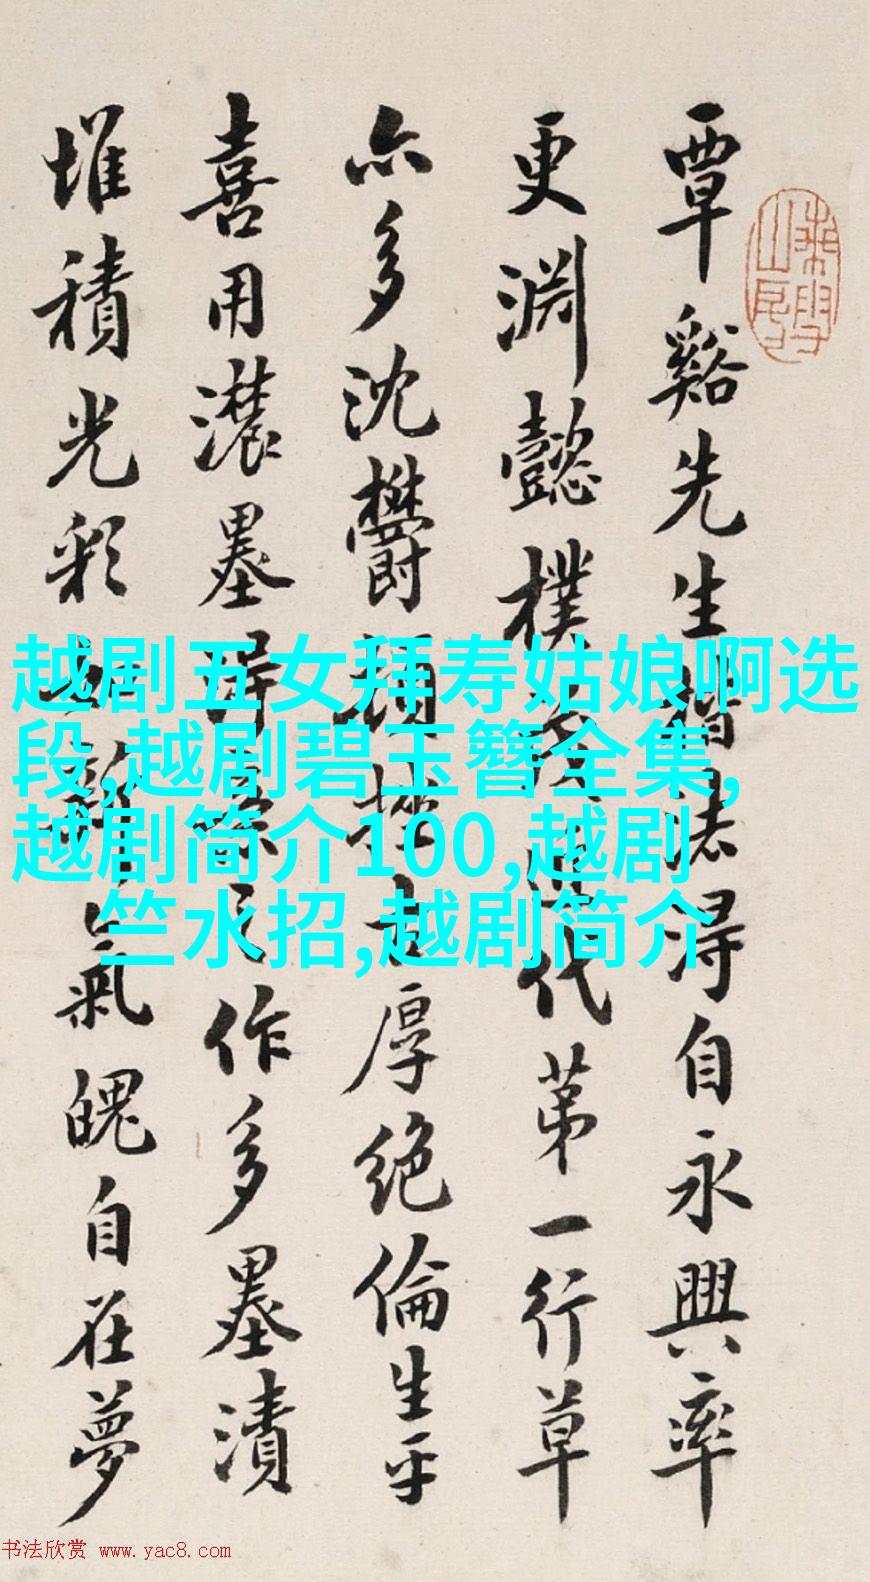 覃谿先生楷法淂自永興率
更淵懿樸茂近代苐一行草
亦多沈欝頓挫古厚絶倫生平
喜用濃墨淂意之作多墨漬
堆積光彩氣魄自在夢
越剧五女拜寿姑娘啊选
段,越剧碧玉簪全集,
越剧简介100,越剧
竺水招,越剧简介
书法欣赏 www.yac8.com